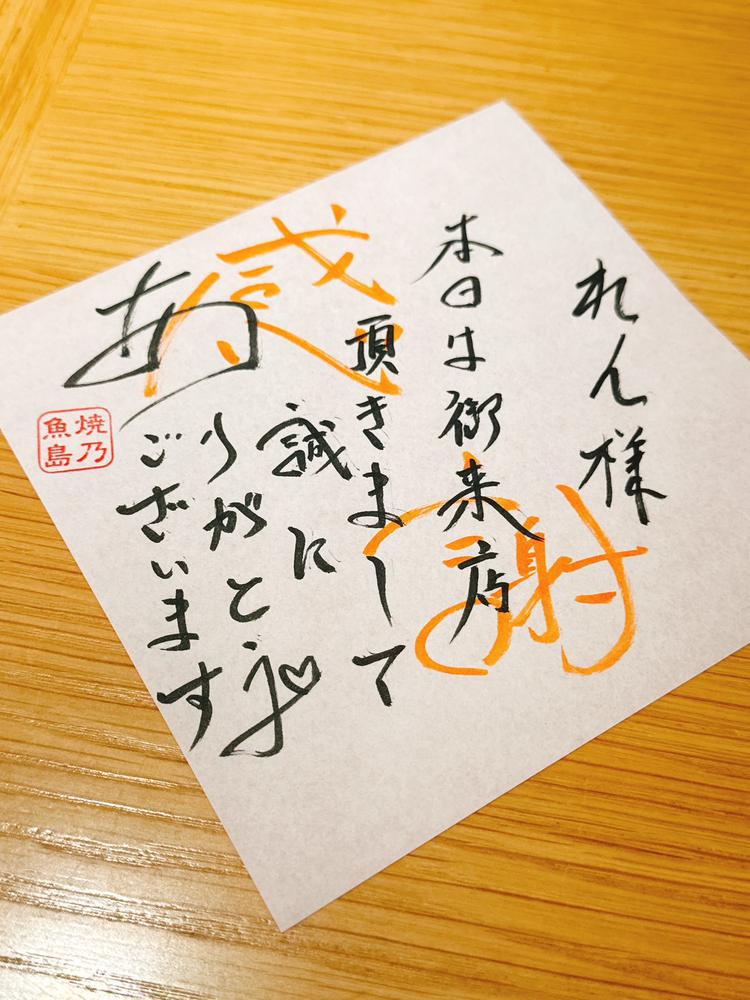 れん様
本日は御来店
頂きまして
誠に
ありがとう♡
ございます
感謝
焼乃
魚島